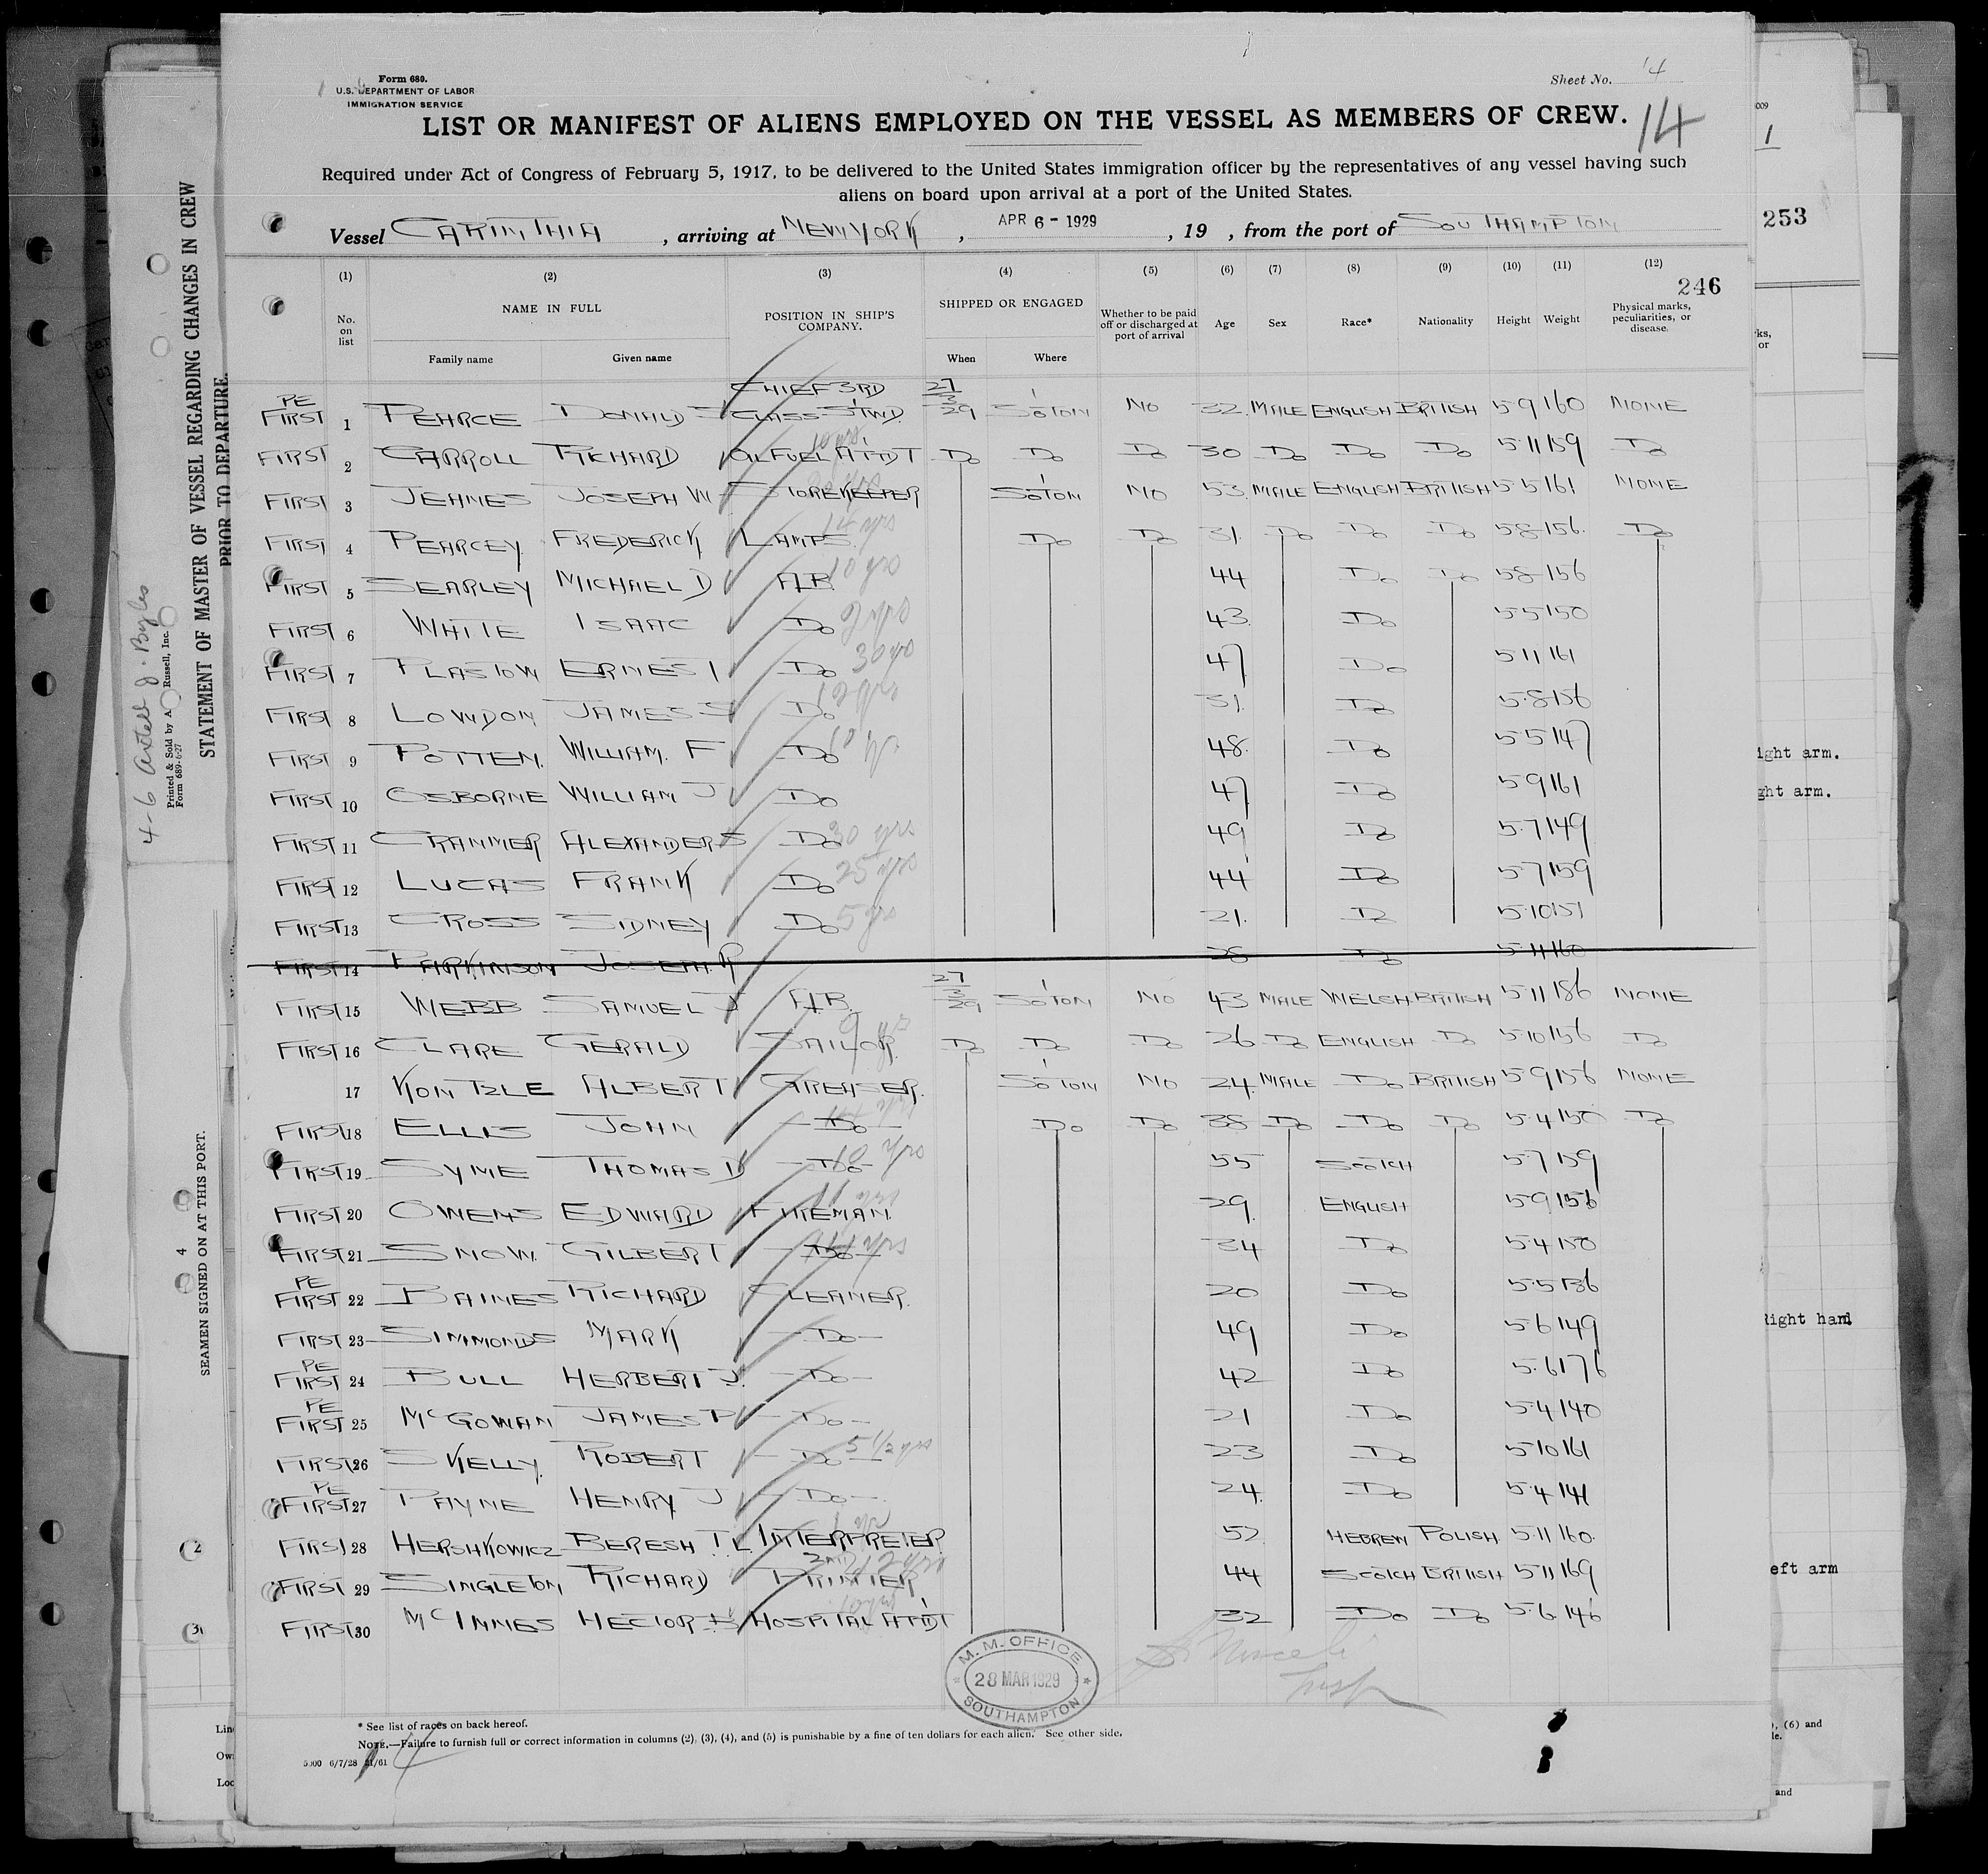 Form 689.
U.S. DEPARTMENT OF LABOR
IMMIGRATION SERVICE
Sheet No. 14
LIST OR MANIFEST OF ALIENS EMPLOYED ON THE VESSEL AS MEMBERS OF CREW. 14
Required under Act of Congress of February 5, 1917, to be delivered to the United States immigration officer by the representatives of any vessel having such
aliens on board upon arrival at a port of the United States.
Vessel CARINTHIA, arriving at NEW YORK, APR 6 - 1929, 19 , from the port of SOUTHAMPTON
(1) (2) (3) (4) (5) (6) (7) (8) (9) (10) (11) (12)
246
No. on list NAME IN FULL Family name Given name POSITION IN SHIP'S COMPANY. SHIPPED OR ENGAGED When Where Whether to be paid off or discharged at port of arrival Age Sex Race* Nationality Height Weight Physical marks, peculiarities, or disease.
PE FIRST 1 PEARCE DONALD S CHIEF 3RD CLASS STWD. 27/3/29 SO'TON NO 32 MALE ENGLISH BRITISH 5-9 160 NONE
FIRST 2 CARROLL RICHARD OIL FUEL ATT'DT 10 yrs DO DO DO 30 DO DO DO 5-11 159 DO
FIRST 3 JEANES JOSEPH W STOREKEEPER SO'TON NO 53 MALE ENGLISH BRITISH 5-5 161 NONE
FIRST 4 PEARCEY FREDERICK LAMPS. 14 yrs DO DO 31 DO DO DO 5-8 156 DO
FIRST 5 SEARLEY MICHAEL D A.B. 10 yrs 44 DO DO 5-8 156
FIRST 6 WHITE ISAAC DO 2 yrs 43 DO 5-5 150
FIRST 7 PLASTOW ERNEST DO 30 yrs 47 DO 5-11 161
FIRST 8 LOWDON JAMES S DO 12 yrs 31 DO 5-8 156
FIRST 9 POTTEN. WILLIAM. F DO 48 DO 5-5 147
FIRST 10 OSBORNE WILLIAM J DO 47 DO 5-9 161
FIRST 11 CRANMER ALEXANDER S DO 30 yrs 49 DO 5-7 149
FIRST 12 LUCAS FRANK DO 25 yrs 44 DO 5-7 159
FIRST 13 CROSS SIDNEY DO 5 yrs 21 DO 5-10 151
FIRST 14 PARKINSON JOSEPH. R 28 DO 5-11 160
FIRST 15 WEBB SAMUEL J A.B. 27/3/29 SO'TON NO 43 MALE WELSH BRITISH 5-11 186 NONE
FIRST 16 CLARE GERALD SAILOR. 9 yrs DO DO DO 26 DO ENGLISH DO 5-10 156 DO
17 KONTZLE ALBERT GREASER. SO'TON NO 24 MALE DO BRITISH 5-9 156 NONE
FIRST 18 ELLIS JOHN DO DO DO 38 DO DO DO 5-4 150 DO
FIRST 19 SYME THOMAS D DO 10 yrs 55 SCOTCH 5-7 159
FIRST 20 OWENS EDWARD FIREMAN. 11 yrs 29 ENGLISH 5-9 156
FIRST 21 SNOW. GILBERT DO yrs 34 DO 5-4 150
PE FIRST 22 BAINES RICHARD CLEANER. 20 DO 5-5 136
FIRST 23 SIMMONDS MARK DO 49 DO 5-6 149
PE FIRST 24 BULL HERBERT J. DO 42 DO 5-6 176
PE FIRST 25 McGOWAN JAMES P DO 21 DO 5-4 140
FIRST 26 SKELLY. ROBERT DO 5 1/2 yrs 23 DO 5-10 161
PE FIRST 27 PAYNE HENRY J DO 24 DO 5-4 141
FIRST 28 HERSHKOWICZ BERESH T.L INTERPRETER. 1 yr 52 HEBREW POLISH 5-11 160
FIRST 29 SINGLETON RICHARD 2ND PRINTER 2 yrs 44 SCOTCH BRITISH 5-11 169
FIRST 30 McINNES HECTOR HOSPITAL ATT'DT 32 DO DO 5-6 146
M. M. OFFICE
28 MAR 1929
SOUTHAMPTON
* See list of races on back hereof.
NOTE.—Failure to furnish full or correct information in columns (2), (3), (4), and (5) is punishable by a fine of ten dollars for each alien. See other side.
5000 6/7/28 21/61
STATEMENT OF MASTER OF VESSEL REGARDING CHANGES IN CREW
PRIOR TO DEPARTURE.
Printed & Sold by A Russell, Inc.
Form 689-6-27
SEAMEN SIGNED ON AT THIS PORT.
4
2
3
1
253
ight arm.
ght arm.
Right hand
eft arm
, (6) and
and